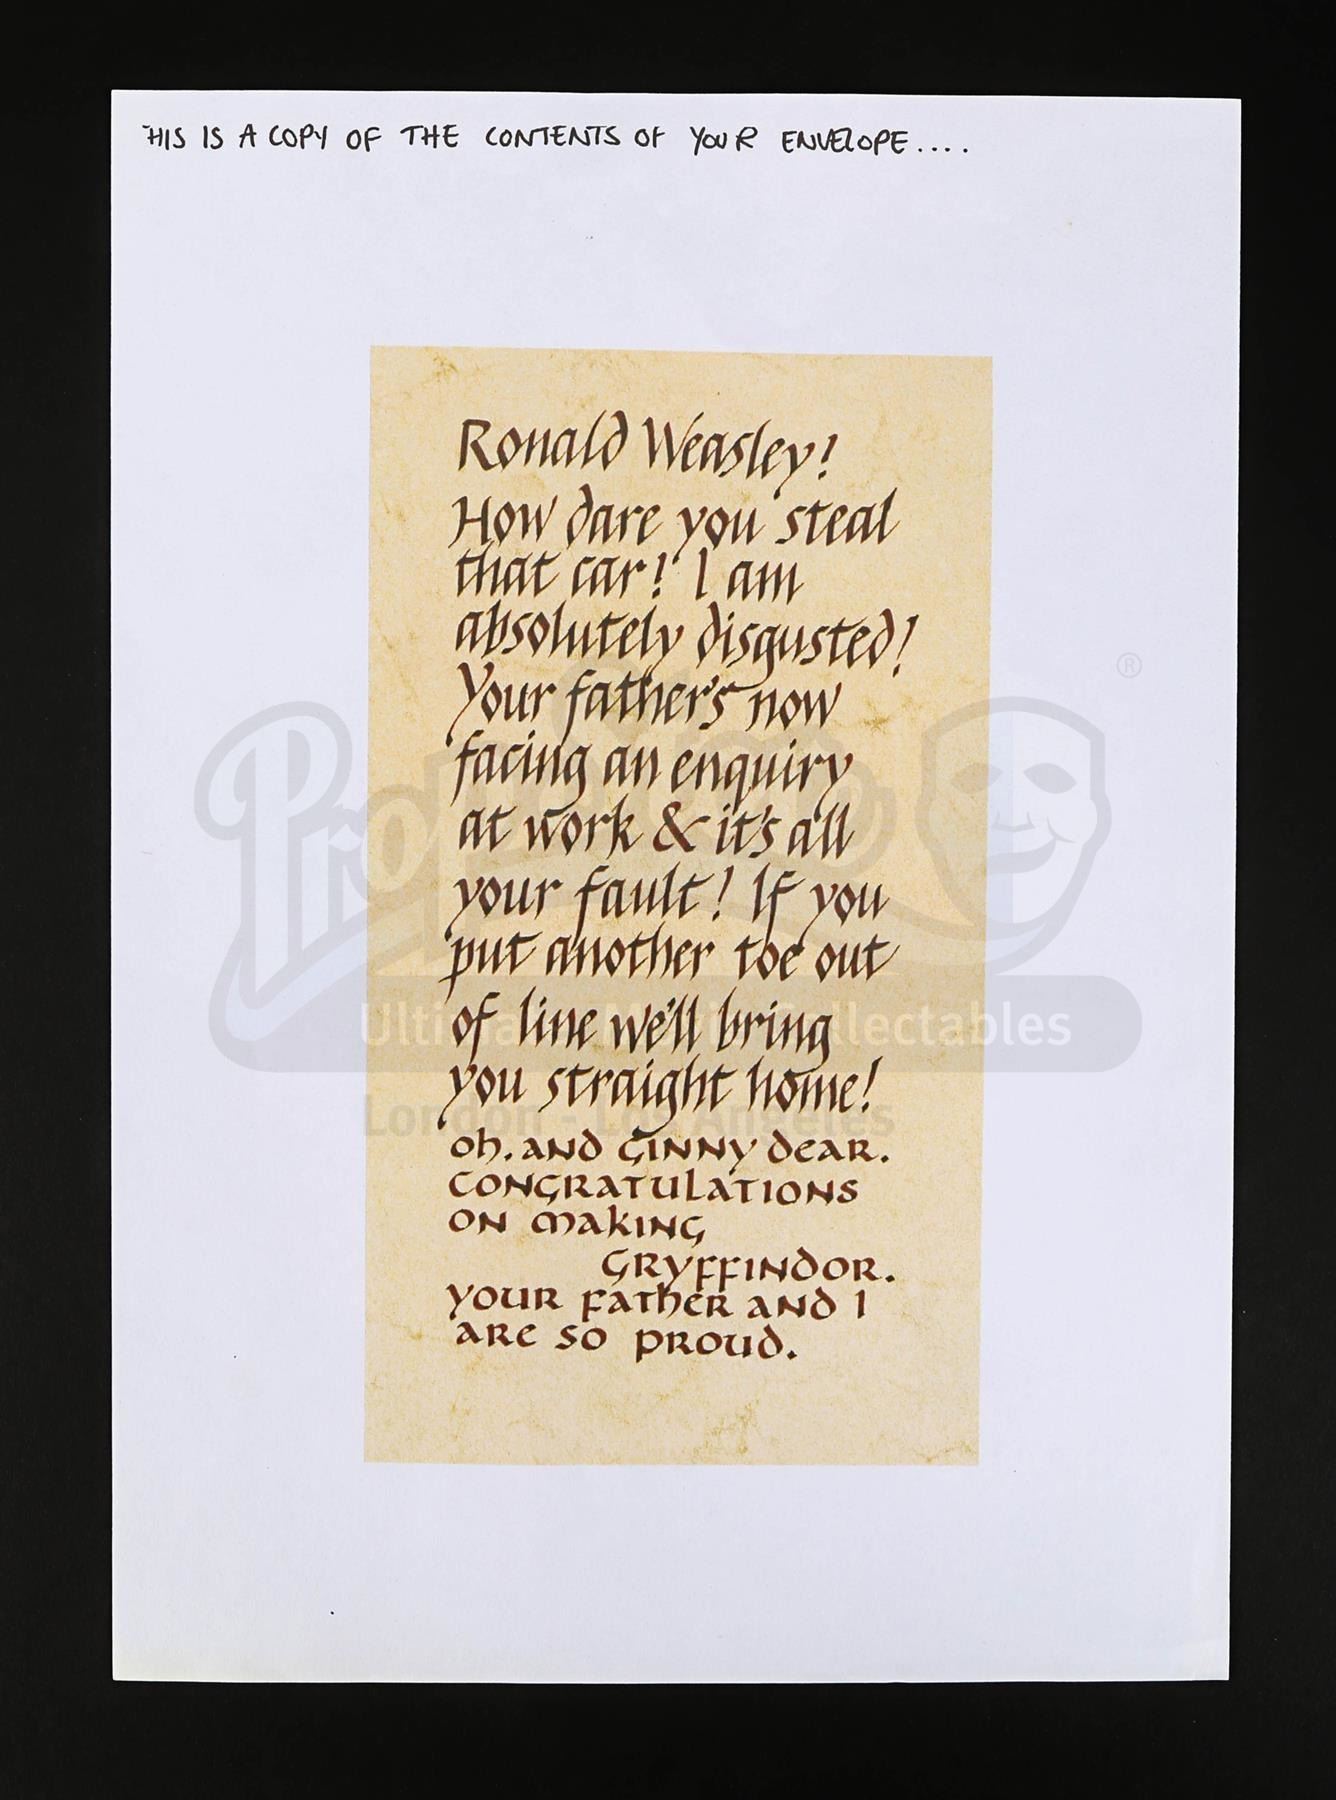 THIS IS A COPY OF THE CONTENTS OF YOUR ENVELOPE....
Ronald Weasley!
How dare you steal
that car! I am
absolutely disgusted!
Your father's now
facing an enquiry
at work & it's all
your fault! If you
put another toe out
of line we'll bring
you straight home!
Oh, and Ginny dear.
Congratulations
on making
Gryffindor.
Your father and I
are so proud.
®
Propstore
Ultimate Movie Collectables
London - Los Angeles